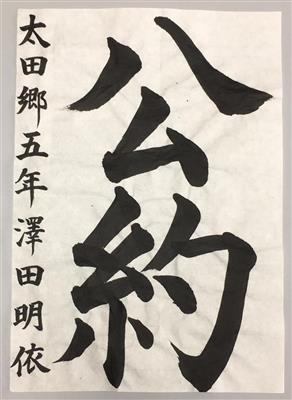 公約
太田郷五年澤田明依